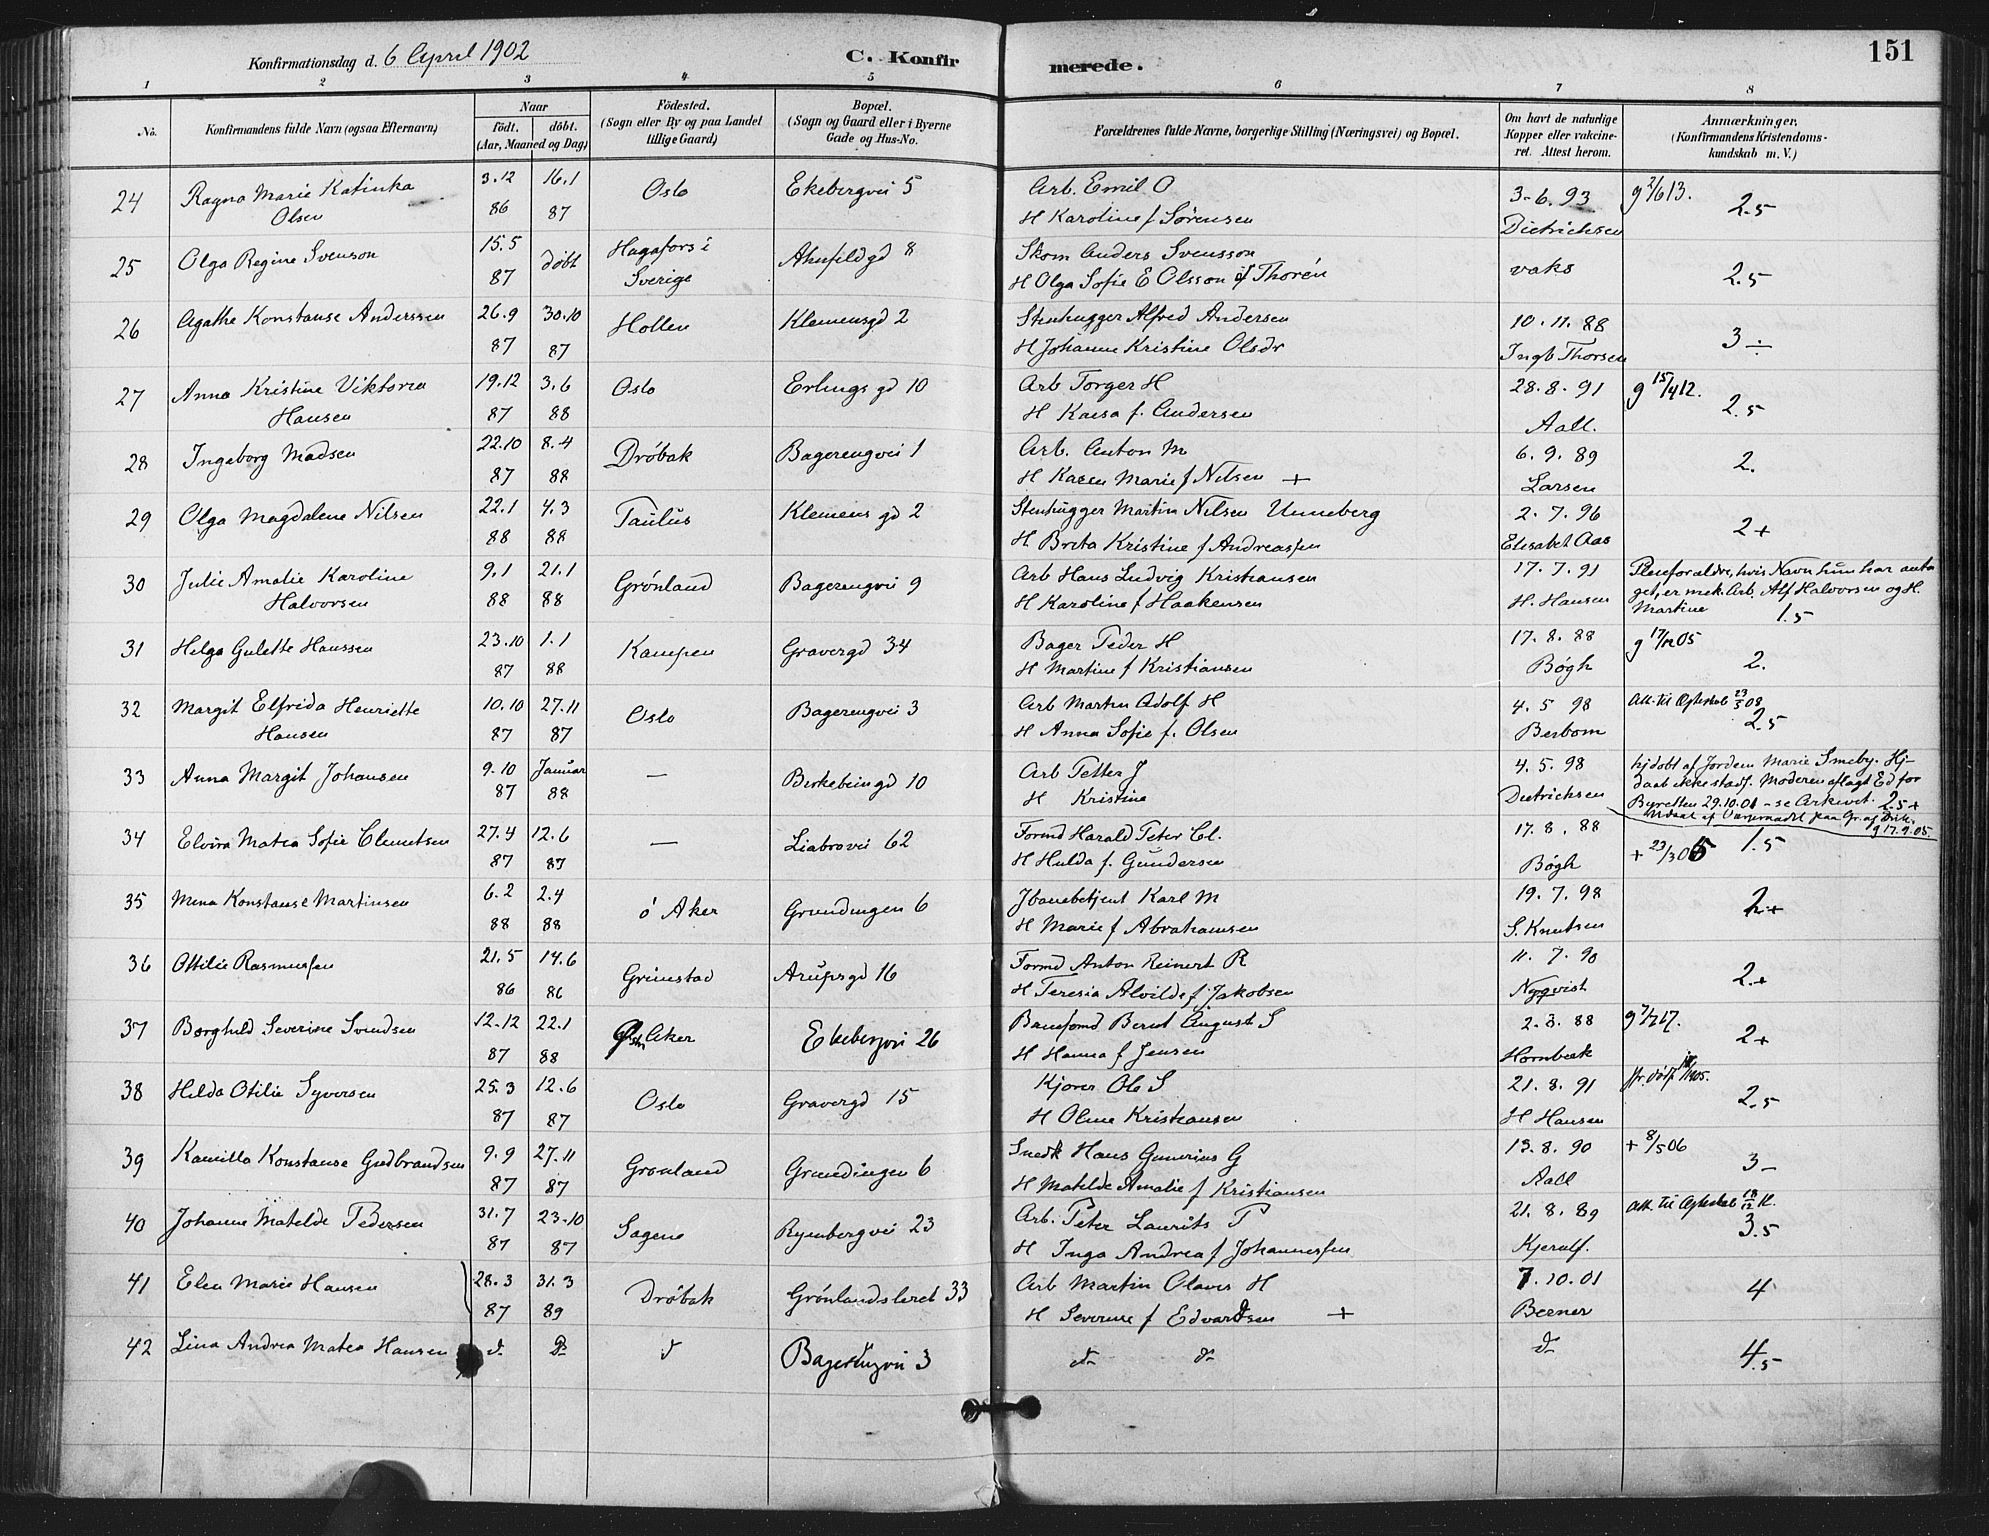 Konfirmationsdag d. 6 April 1902
C. Konfirmerede.
151
1 2 3 4 5 6 7 8
No. Konfirmandens fulde Navn (ogsaa Efternavn) Naar födt. döbt. (Aar, Maaned og Dag) Födested. (Sogn eller By og paa Landet tillige Gaard) Bopæl. (Sogn og Gaard eller i Byerne Gade og Hus-No. Forældrenes fulde Navne, borgerlige Stilling (Næringsvei) og Bopæl. Om havt de naturlige Kopper eller vakcineret. Attest herom. Anmærkninger, (Konfirmandens Kristendomskundskab m. V.)
24 Ragna Marie Katinka 3.12 16.1 Oslo Ekebergvei 5 Arb. Emil O 3-6.93 g 2/6 13. 2.5
Olsen 86 87 H Karoline f Sørensen Dietrichsen
25 Olga Regine Svenson 15.5 döbt Hagafors i Ahnfeldgd 8 Skom Anders Svensson vaks 2.5
87 Sverige H Olga Sofie E Olsson f Thorén
26 Agathe Konstanse Anderssen 26.9 30.10 Hollen Klemensgd 2 Stenhugger Alfred Andersen 10.11.88 3 ÷
87 87 H Johanne Kristine Olsdr Ingb Thorsen
27 Anna Kristine Viktoria 19.12 3.6 Oslo Erlings gd 10 Arb Torger H 28.8.91 g 15/4 12. 2.5
Hansen 87 88 H Kaisa f. Andersen Aall.
28 Ingeborg Madsen 22.10 8.4 Dröbak Bagerengvei 1 Arb. Anton M 6.9.89 2.
87 88 H Karen Marie f Nilsen + Larsen
29 Olga Magdalene Nilsen 22.1 4.3 Paulus Klemens gd 2 Stenhugger Martin Nilsen Unneberg 2.7.96 2+
88 88 H Breta Kristine f Andreassen Elisabet Aas
30 Julie Amalie Karoline 9.1 21.1 Grönland Bagerengvei 9 Arb Hans Ludvig Kristiansen 17.7.91 Pleieforældre, hvis Navn hun har anta
Halvorsen 88 88 H Karoline f Haakensen H. Hansen get, er mek. Arb. Alf Halvorsen og H.
Martine 1.5
31 Helga Gulette Hanssen 23.10 1.1 Kampen Gravergd 34 Bager Peder H 17.8.88 g 17/12 05
87 88 H Martine f Kristiansen Bögh 2.
32 Margit Elfrida Henriette 10.10 27.11 Oslo Bagerengvei 3 Arb Martin Adolf H 4.5 98 Att. til Ægteskab 23/5 08
Hansen 87 87 H Anna Sofie f. Olsen Berbom 2.5
33 Anna Margit Johansen 9.10 Januar — Birkebeingd 10 Arb Petter J 4.5.98 hjdöbt af Jordem Marie Smeby. Hj-
87 88 H Kristine Dietrichsen daab ikke stadf. Moderen aflagt Ed for
Byretten 29.10.01 - se Arkivet. 2.5+
g 17.9.05.
34 Elvira Matea Sofie Clemetsen 27.4 12.6 — Liabrovei 62 Formd Harald Peter Cl. 17.8.88 + 23/3 05 1.5
87 87 H Hulda f. Gundersen Bögh
35 Mina Konstanse Martinsen 6.2 2.4 ö Aker Grundingen 6 Jbanebetjent Karl M 19.7.98 2+
88 88 H Marie f Abrahamsen S. Knutsen
36 Ottilie Rasmussen 21.5 14.6 Grimstad Arupsgd 16 Formd Anton Reinert R 11.7.90 2.+
86 86 H Teresia Alvilde f Jakobsen Nyqvist
37 Borghild Severine Svendsen 12.12 22.1 Østr Aker Ekebergvei 26 Banefomd Bernt August S 2.3.88 g 7/7 17. 2+
87 88 H Hanna f Jensen Hornbæk
38 Hilda Otilie Syversen 25.3 12.6 Oslo Gravergd 15 Kjører Ole S 21.8.91 2.5
87 87 H Oline Kristiansen H Hansen
39 Kamilla Konstanse Gudbrandsen 9.9 27.11 Grønland Grundingen 6 Snedk Hans Gunerius G 13.8.90 + 8/5 06 3-
87 87 H Matilde Amalie f Kristiansen Aall
40 Johanne Matilde Pedersen 31.7 23.10 Sagene Rymbergvei 23 Arb. Peter Laurits P 21.8.89 Att. til Ægteskab 18/12 11. 3.5
87 87 H Inga Andrea f Johannessen Kjerulf.
41 Elen Marie Hansen 28.3 31.3 Dröbak Grönlandsleret 33 Arb Martin Olaves H 7.10.01 4
87 89 H Severine f Edvardsen + Berner
42 Lina Andrea Matea Hansen d- D- d Bagerengvei 3 d- d- d- 4.5